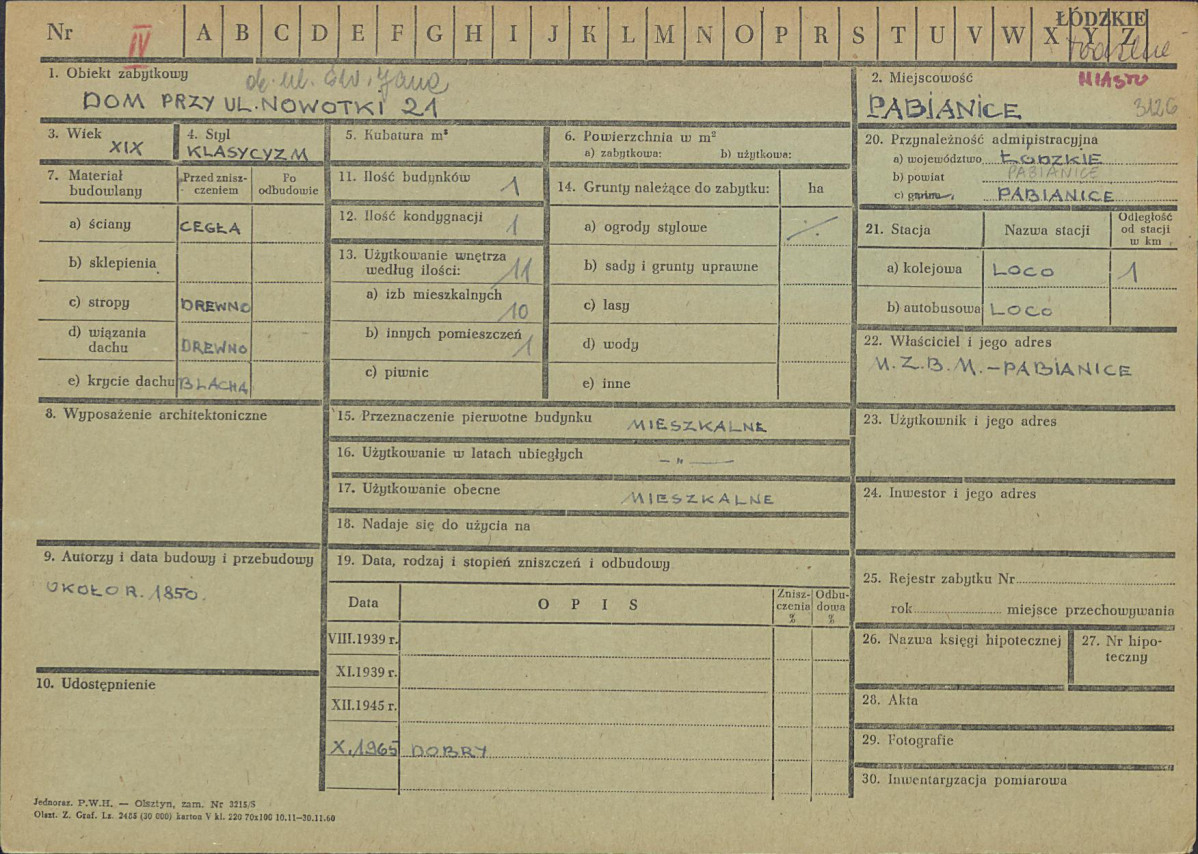 Nr IV A B C D E F G H I J K L M N O P R S T U V W X Y Z
ŁÓDZKIE
1. Obiekt zabytkowy
ob. ul. Św. Jana
DOM PRZY UL. NOWOTKI 21
2. Miejscowość
MIASTO
PABIANICE 3126
3. Wiek
XIX
4. Styl
KLASYCYZM
5. Kubatura m³
6. Powierzchnia w m²
a) zabytkowa: b) użytkowa:
7. Materiał budowlany
Przed znisz-
czeniem
Po
odbudowie
a) ściany CEGŁA
b) sklepienia
c) stropy DREWNO
d) wiązania
dachu DREWNO
e) krycie dachu BLACHA
8. Wyposażenie architektoniczne
9. Autorzy i data budowy i przebudowy
OKOŁO R. 1850.
10. Udostępnienie
11. Ilość budynków 1
12. Ilość kondygnacji 1
13. Użytkowanie wnętrza
według ilości: 11
a) izb mieszkalnych
10
b) innych pomieszczeń
1
c) piwnic
14. Grunty należące do zabytku: ha
a) ogrody stylowe ./.
b) sady i grunty uprawne
c) lasy
d) wody
e) inne
15. Przeznaczenie pierwotne budynku MIESZKALNE
16. Użytkowanie w latach ubiegłych — „ —
17. Użytkowanie obecne MIESZKALNE
18. Nadaje się do użycia na
19. Data, rodzaj i stopień zniszczeń i odbudowy
Data
O P I S
Znisz-
czenia
%
Odbu-
dowa
%
VIII.1939 r.
XI.1939 r.
XII.1945 r.
X.1965 DOBRY
20. Przynależność administracyjna
a) województwo ŁÓDZKIE
b) powiat PABIANICE
c) gmina PABIANICE
21. Stacja
Nazwa stacji
Odległość
od stacji
w km
a) kolejowa LOCO 1
b) autobusowa LOCO
22. Właściciel i jego adres
M.Z.B.M. - PABIANICE
23. Użytkownik i jego adres
24. Inwestor i jego adres
25. Rejestr zabytku Nr
rok miejsce przechowywania
26. Nazwa księgi hipotecznej
27. Nr hipo-
teczny
28. Akta
29. Fotografie
30. Inwentaryzacja pomiarowa
Jednoraz. P.W.H. — Olsztyn, zam. Nr 3215/S
Olszt. Z. Graf. Lz. 2455 (30 000) karton V kl. 220 70x100 10.11—30.11.60